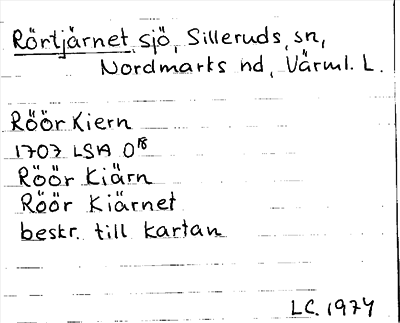 Rörtjärnet, sjö, Silleruds, sn,
Nordmarks nd, Värml. L.
Röör Kiern
1707 LSA O18
Röör Kiärn
Röör Kiärnet
beskr. till kartan
LC. 1974